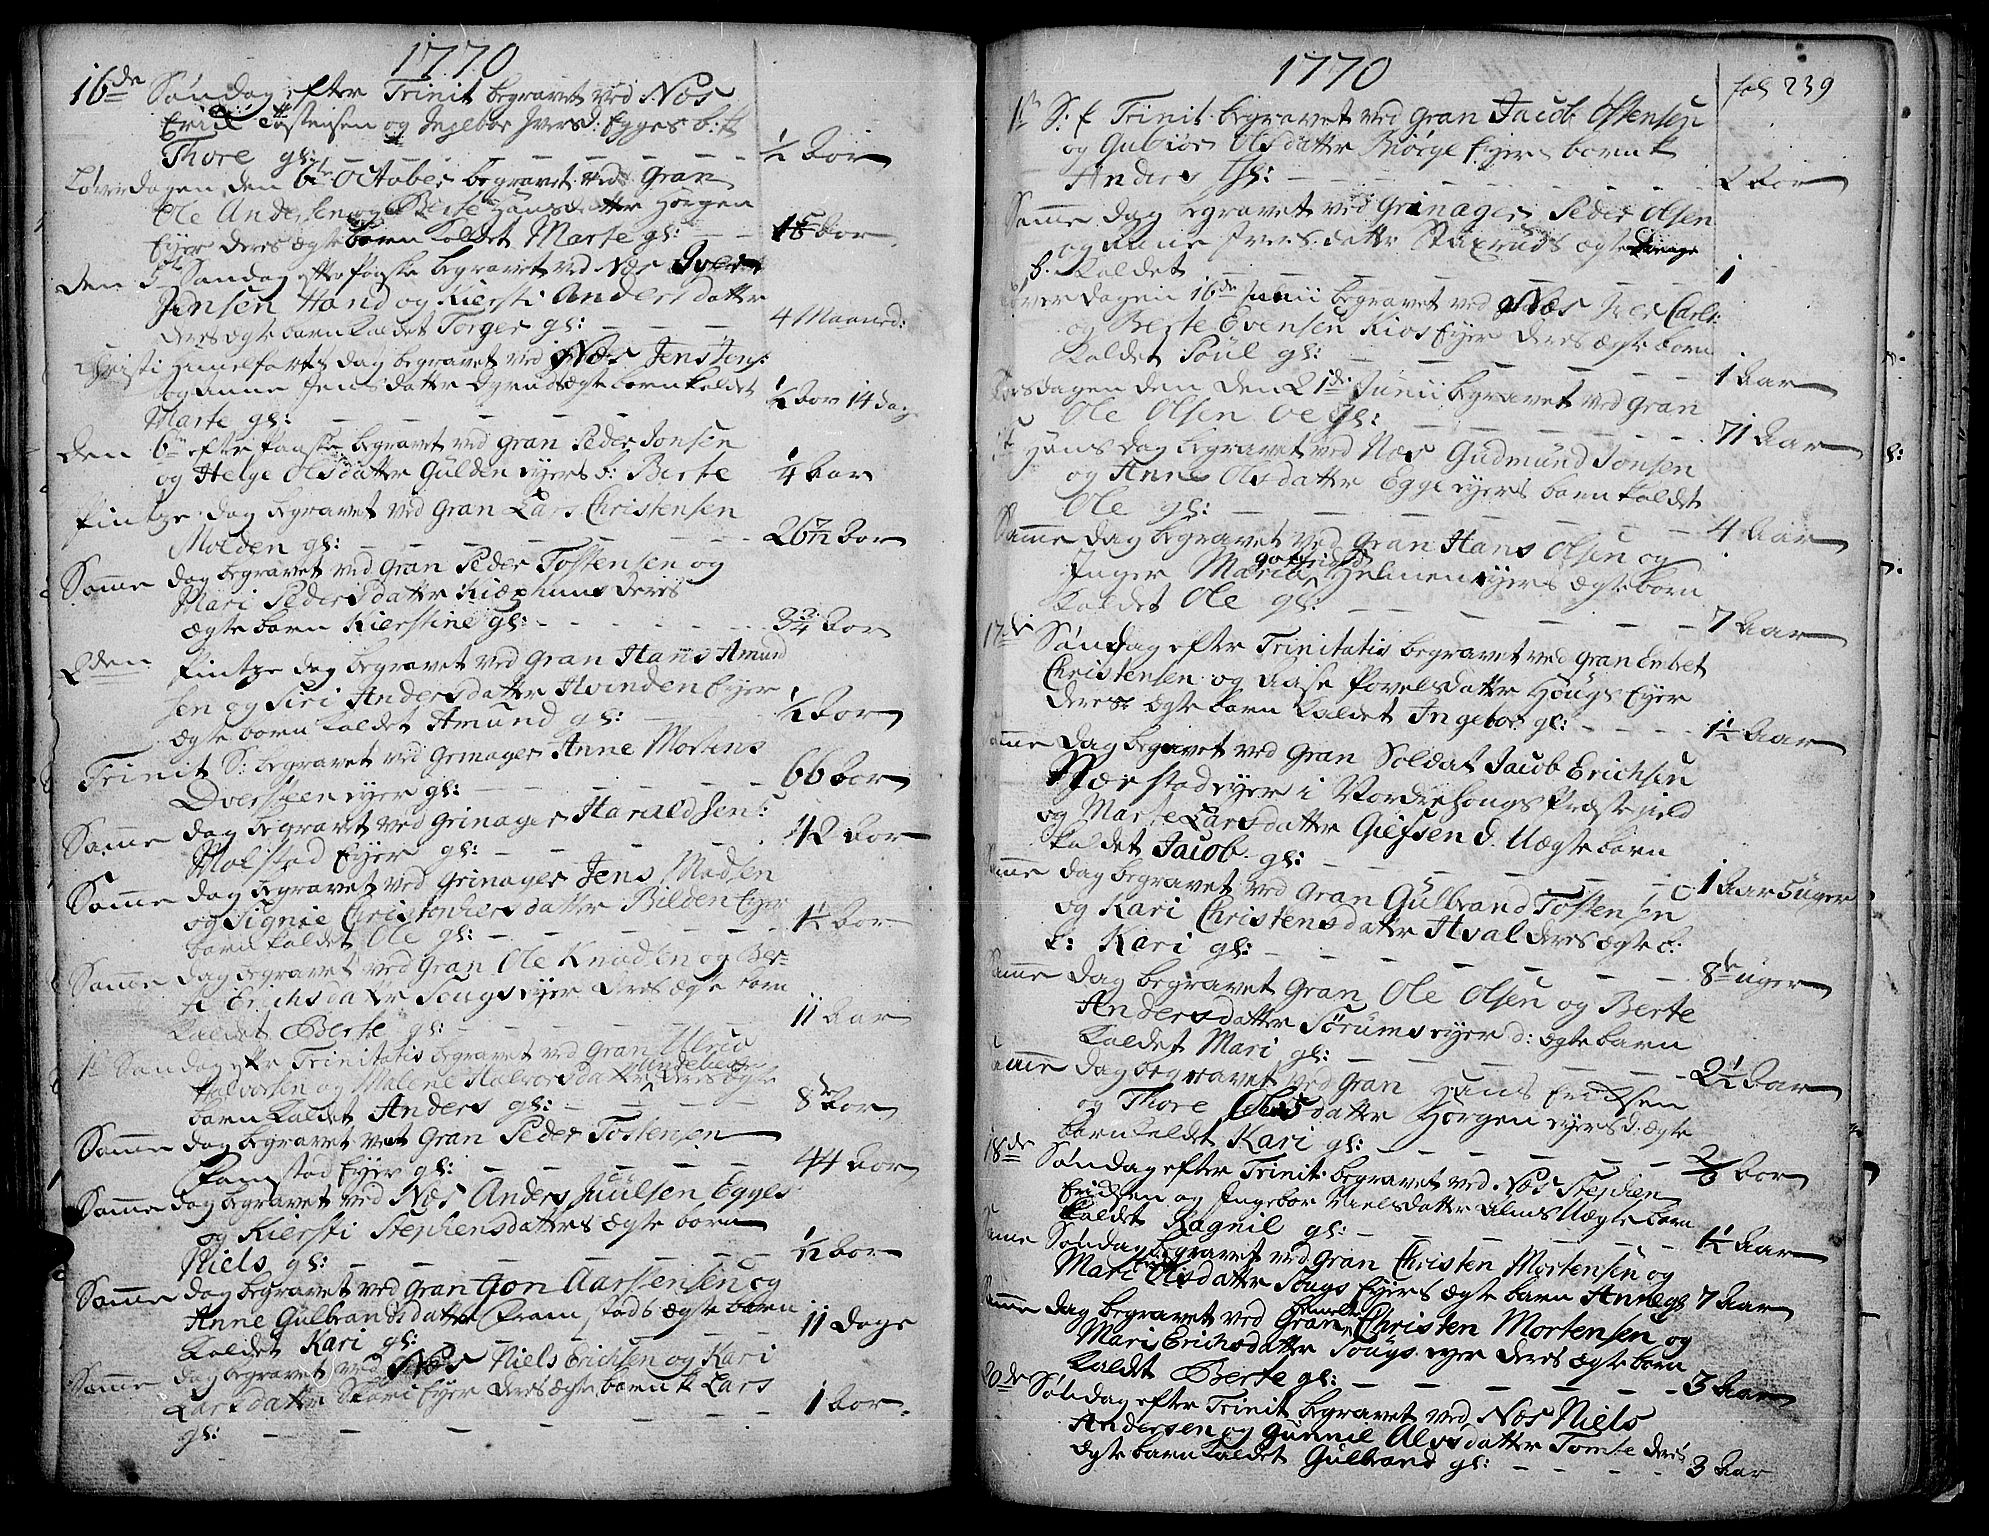 1770
16de Søndag efter Trinit begravet ved Næs
Erik Tostensen og Ingebor Ivers d: Egges b: k
Thore gl: ½ Aar
Løverdagen den 6te October begravet ved Gran
Ole Andersen og Berte Hansdatter Horgen
Eyer deres ægte barn kaldet Marte gl:
Den 5te Søndag efter Paaske begravet ved Næs Iver
Jensen Hand og Kiersti Andersdatter
deres ægte barn kaldet Torger gl: 4 Maaned:
Christi Himelfarts dag begravet ved Næs Jens Jens:
og Anne Jensdatter Dynna ægte barn kaldet
Marte gl: ½ Aar 14 dage
Den 6te efter Paaske begravet ved Gran Peder Jonsen
og Helge Olsdatter Gulden eyers b: Berte ¼ Aar
Pintze dag begravet ved Gran Lars Christensen
Molden gl: 26 Aar
Samme dag begravet ved Gran Peder Tostensen og
Mari Pedersdatter deres
ægte barn Kierstine gl: 3¾ Aar
2den Pintze dag begravet ved Gran Hans Amund
sen og Siri Andersdatter Hvinden Eyer
ægte barn kaldet Amund gl: ½ Aar
Trinit S: begravet ved Grinager Anne Mortens
eyer gl: 66 Aar
Samme dag begravet ved Grinager Harald Sen:
Molstad Eyer gl: 42 Aar
Samme dag begravet ved Grinager Jens Madsen
og Signie Christophersdatter Bilden Eyer
barn kaldet Ole gl: 1½ Aar
Samme dag begravet ved Gran Ole Knudsen og Ber=
te Erichsdatter Sougs eyer deres ægte barn
kaldet Berte gl: 11 Aar
1te Søndag efter Trinitatis begravet ved Gran
Halvorsen og Malene Halvorsdatter deres ægte
barn kaldet Anders gl: 8 Aar
Samme dag begravet ved Gran Peder Tostensen
Framstad Eyer gl: 44 Aar
Samme dag begravet ved Næs Anders Juulsen Egges
og Kiersti Stephensdatters ægte barn
Niels gl: ½ Aar
Samme dag begravet ved Gran Gon Aarstensen og
Anne Gulbrandsdatter Framstads ægte barn
kaldet Kari gl: 11 dage
Samme dag begravet ved Næs Niels Erichsen og Kari
Larsdatter Skari Eyer deres ægte barn k Lars
gl: 1 Aar.
1770
fol 239
1te S: e Trinit begravet ved Gran Jacob Ostensen
og Gubiør Olsdatter Biørge Eyers barn k
Anders gl: 2 Aar
Samme dag begravet ved Grinager Peder Olsen
og Anne Iversdatter Staxruds ægte
b. kaldet 1
Løverdagen 16de Junii begravet ved Næs Iver Carls:
og Berte Evensen Kios Eyer deres ægte barn
kaldet Poul gl: 1 Aar
Torsdagen den 21de Junii begravet ved Gran
Ole Olsen gl: 71 Aar
St Hans dag begravet ved Næs Gudmund Jonsen
og Anne Olsdatter Egge eyers barn kaldet
Ole gl: 4 Aar
Samme dag begravet ved Gran Hans Olsen og
Inger Maria Gotfrids Helmen eyers ægte barn
kaldet Ole gl: 7 Aar
17de Søndag efter Trinitatis begravet ved Gran Enbet
Christensen og Aase Povelsdatter Hougs Eyer
deres ægte barn kaldet Ingebor gl: 1½ Aar
Samme dag begravet ved Gran Soldat Jacob Erichsen
Nærstad eyer i Norderhougs Præstegield
og Marte Larsdatter Giefsen d. Uægte barn
kaldet Jacob gl: 1 Aar 5 Uger
Samme dag begravet ved Gran Gulbrand Tostensen
og Kari Christensdatter Hval deres ægte b:
k: Kari gl: 8de uger
Samme dag begravet Gran Ole Olsen og Berte
Andersdatter Sørums eyer d: ægte barn
kaldet Mari gl: 2½ Aar
Samme dag begravet ved Gran Hans Erichsen
og Thore Olsdatter Horgen eyers d: ægte
barn kaldet Kari gl: Aar
18de Søndag efter Trinit begravet ved Næs Stephen
Erichsen og Ingebor Nielsdatter Alms Uægte barn
kaldet Ragnil gl: 1½ Aar
Samme Søndag begravet ved Gran Christen Mortensen og
Mari Olsdatter Sougs Eyers ægte barn Anne gl 7 Aar
Samme dag begravet ved Gran Christen Mortensen og
Mari Erichsdatter Sougs eyer deres ægte barn
kaldet Berte gl: 3 Aar
20de Søndag efter Trinit begravet ved Næs Niels
Andersen og Gunnil Alvsdatter Tomte deres
ægte barn kaldet Gulbrand gl: 3 Aar